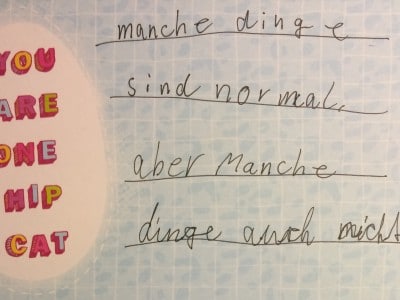 YOU
ARE
ONE
HIP
CAT
manche dinge
sind normal,
aber Manche
dinge auch nicht